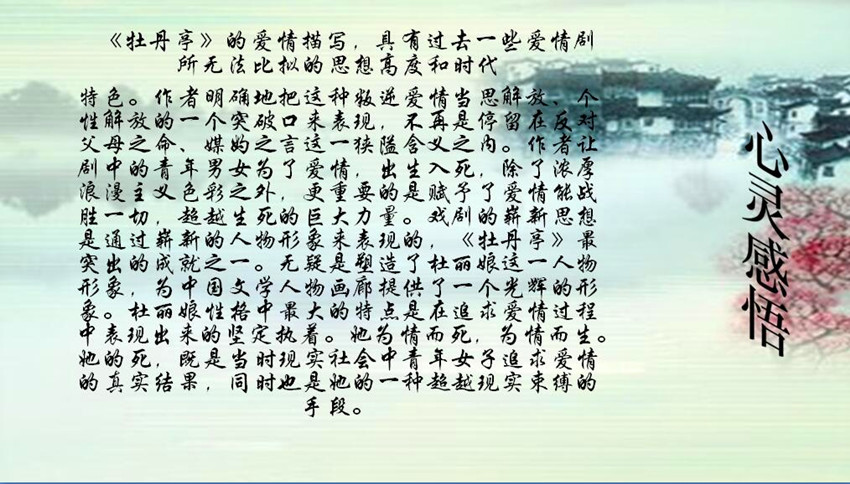 《牡丹亭》的爱情描写，具有过去一些爱情剧
所无法比拟的思想高度和时代
特色。作者明确地把这种叛逆爱情当思解放、个
性解放的一个突破口来表现，不再是停留在反对
父母之命、媒妁之言这一狭隘含义之内。作者让
剧中的青年男女为了爱情，出生入死，除了浓厚
浪漫主义色彩之外，更重要的是赋予了爱情能战
胜一切，超越生死的巨大力量。戏剧的崭新思想
是通过崭新的人物形象来表现的，《牡丹亭》最
突出的成就之一。无疑是塑造了杜丽娘这一人物
形象，为中国文学人物画廊提供了一个光辉的形
象。杜丽娘性格中最大的特点是在追求爱情过程
中表现出来的坚定执着。她为情而死，为情而生。
她的死，既是当时现实社会中青年女子追求爱情
的真实结果，同时也是她的一种超越现实束缚的
手段。
心灵感悟